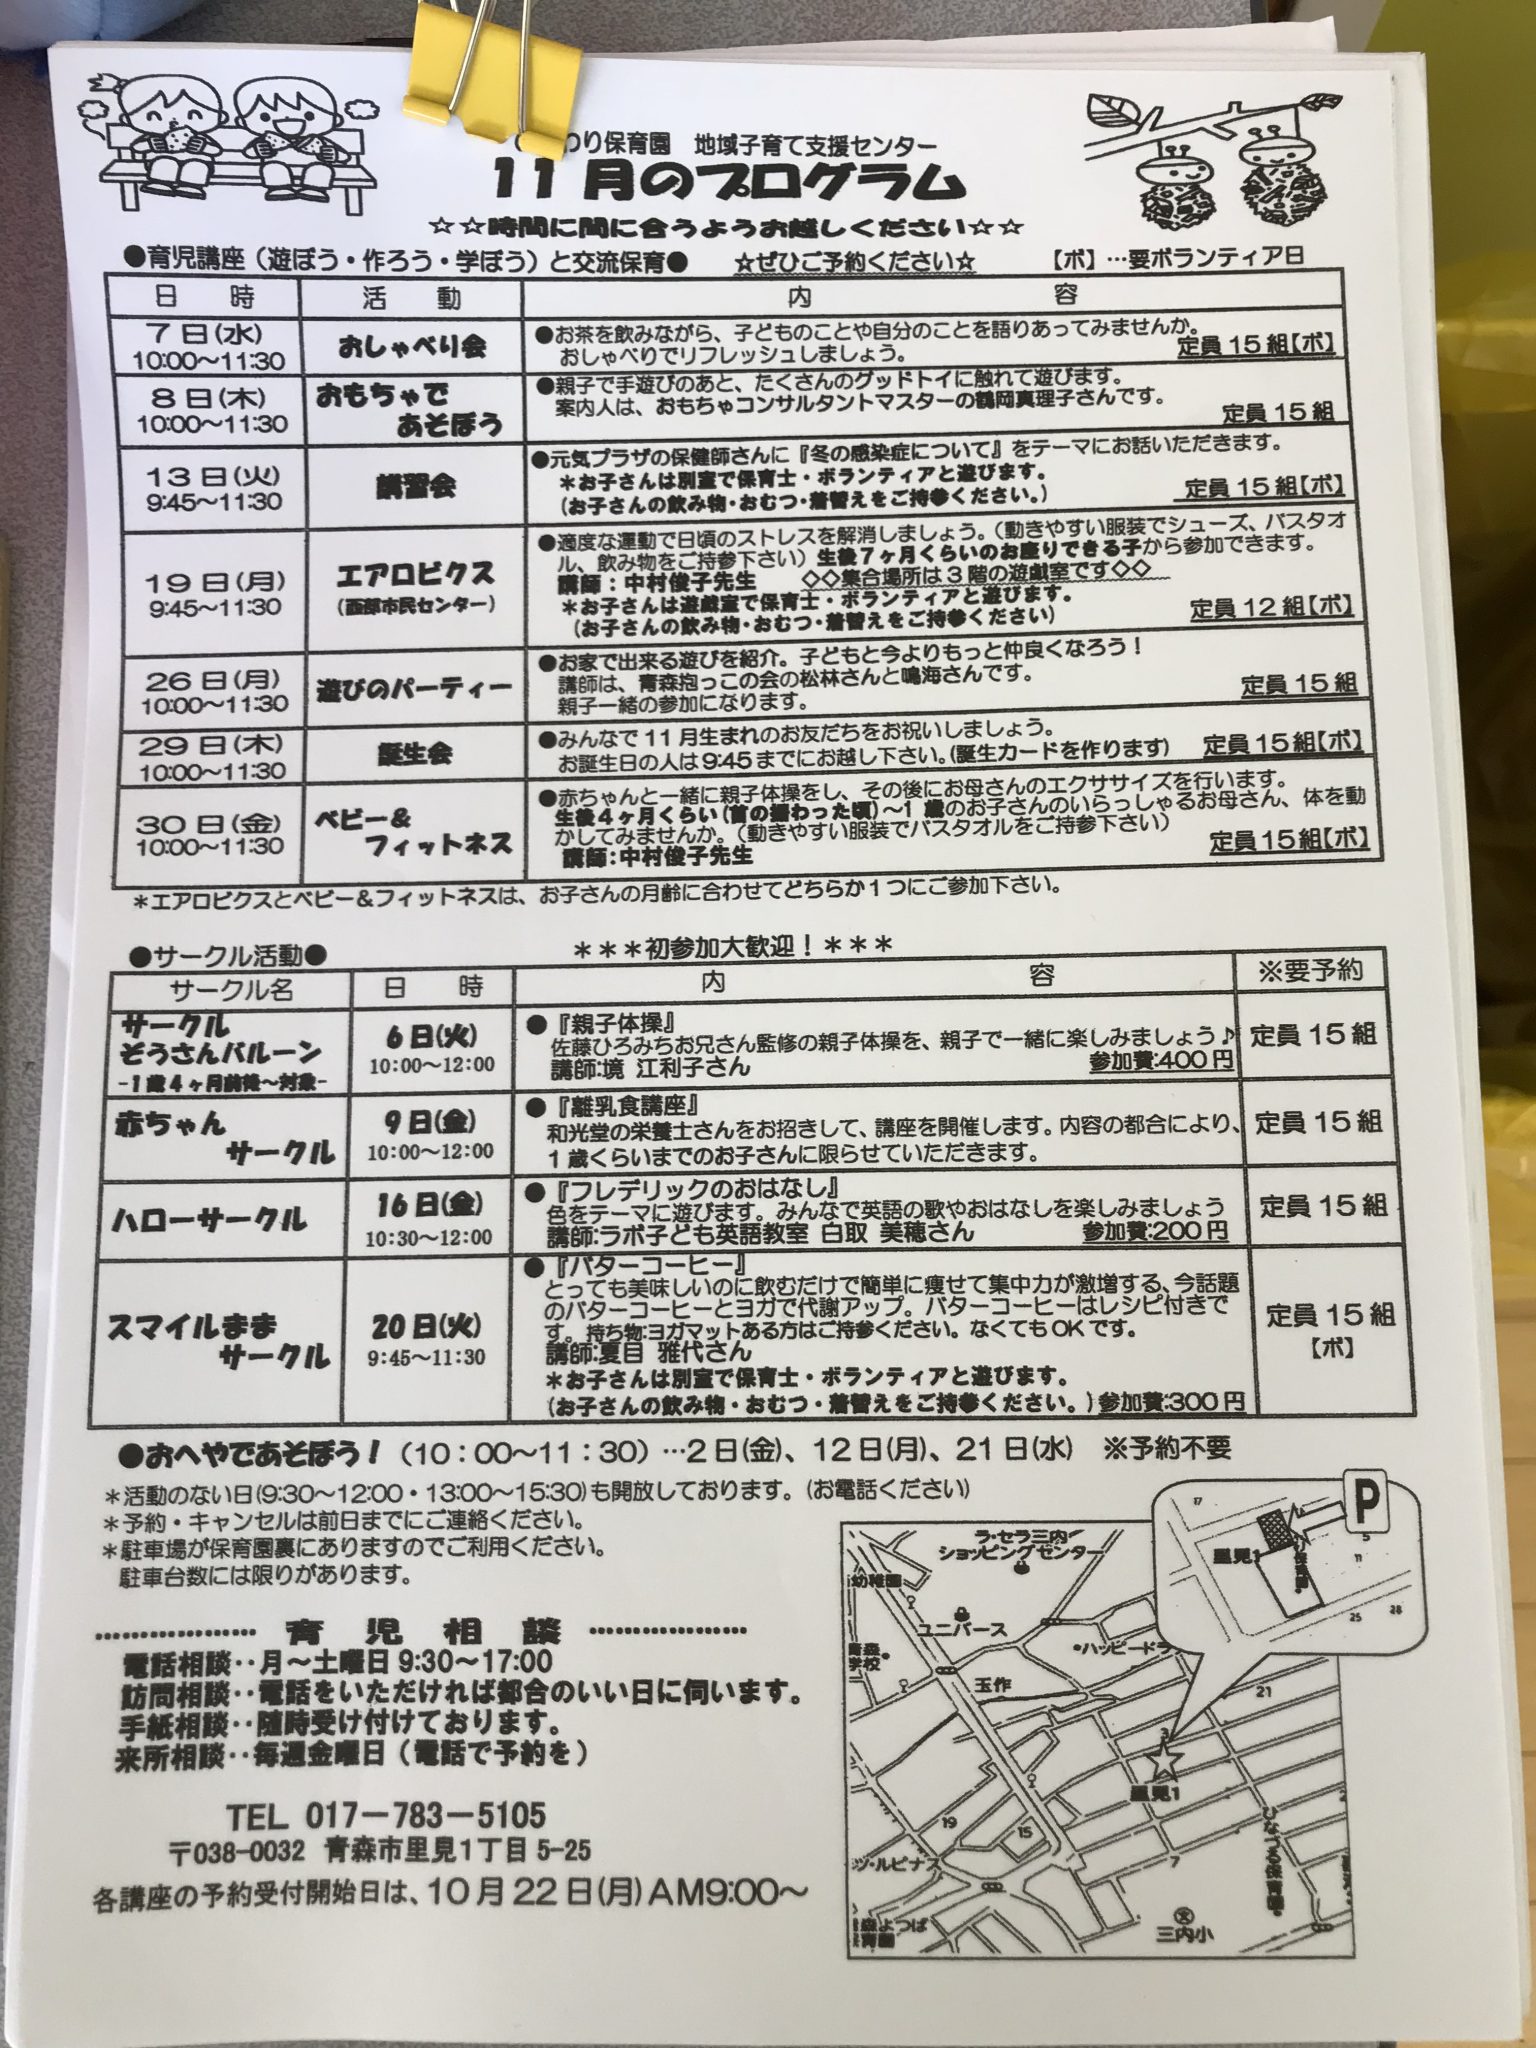 わり保育園 地域子育て支援センター
11月のプログラム
☆☆時間に間に合うようお越しください☆☆
●育児講座(遊ぼう・作ろう・学ぼう)と交流保育● ☆ぜひご予約ください☆ 【ボ】…要ボランティア日
日 時 活 動 内 容
7日(水)
10:00～11:30
おしゃべり会
●お茶を飲みながら、子どものことや自分のことを語りあってみませんか。
おしゃべりでリフレッシュしましょう。 定員15組【ボ】
8日(木)
10:00～11:30
おもちゃで
あそぼう
●親子で手遊びのあと、たくさんのグッドトイに触れて遊びます。
案内人は、おもちゃコンサルタントマスターの鶴岡真理子さんです。
定員15組
13日(火)
9:45～11:30
講習会
●元気プラザの保健師さんに『冬の感染症について』をテーマにお話いただきます。
＊お子さんは別室で保育士・ボランティアと遊びます。
(お子さんの飲み物・おむつ・着替えをご持参ください。) 定員15組【ボ】
19日(月)
9:45～11:30
エアロビクス
(西部市民センター)
●適度な運動で日頃のストレスを解消しましょう。(動きやすい服装でシューズ、バスタオ
ル、飲み物をご持参下さい)生後7ヶ月くらいのお座りできる子から参加できます。
講師：中村俊子先生 ◇◇集合場所は3階の遊戯室です◇◇
＊お子さんは遊戯室で保育士・ボランティアと遊びます。
(お子さんの飲み物・おむつ・着替えをご持参ください) 定員12組【ボ】
26日(月)
10:00～11:30
遊びのパーティー
●お家で出来る遊びを紹介。子どもと今よりもっと仲良くなろう！
講師は、青森抱っこの会の松林さんと鳴海さんです。
親子一緒の参加になります。 定員15組
29日(木)
10:00～11:30
誕生会
●みんなで11月生まれのお友だちをお祝いしましょう。
お誕生日の人は9:45までにお越し下さい。(誕生カードを作ります) 定員15組【ボ】
30日(金)
10:00～11:30
ベビー＆
フィットネス
●赤ちゃんと一緒に親子体操をし、その後にお母さんのエクササイズを行います。
生後4ヶ月くらい(首の据わった頃)～1歳のお子さんのいらっしゃるお母さん、体を動
かしてみませんか。(動きやすい服装でバスタオルをご持参下さい)
講師：中村俊子先生 定員15組【ボ】
＊エアロビクスとベビー＆フィットネスは、お子さんの月齢に合わせてどちらか1つにご参加下さい。
●サークル活動● ＊＊＊初参加大歓迎！＊＊＊
サークル名 日 時 内 容 ※要予約
サークル
ぞうさんバルーン
-1歳4ヶ月前後～対象-
6日(火)
10:00～12:00
●『親子体操』
佐藤ひろみちお兄さん監修の親子体操を、親子で一緒に楽しみましょう♪
講師:境 江利子さん 参加費:400円
定員15組
赤ちゃん
サークル
9日(金)
10:00～12:00
●『離乳食講座』
和光堂の栄養士さんをお招きして、講座を開催します。内容の都合により、
1歳くらいまでのお子さんに限らせていただきます。
定員15組
ハローサークル
16日(金)
10:30～12:00
●『フレデリックのおはなし』
色をテーマに遊びます。みんなで英語の歌やおはなしを楽しみましょう
講師:ラボ子ども英語教室 白取 美穂さん 参加費:200円
定員15組
スマイルまま
サークル
20日(火)
9:45～11:30
●『バターコーヒー』
とっても美味しいのに飲むだけで簡単に痩せて集中力が激増する、今話題
のバターコーヒーとヨガで代謝アップ。バターコーヒーはレシピ付きで
す。持ち物:ヨガマットある方はご持参ください。なくてもOKです。
講師:夏目 雅代さん
＊お子さんは別室で保育士・ボランティアと遊びます。
(お子さんの飲み物・おむつ・着替えをご持参ください。)参加費:300円
定員15組
【ボ】
●おへやであそぼう！(10：00～11：30)…2日(金)、12日(月)、21日(水) ※予約不要
＊活動のない日(9:30～12:00・13:00～15:30)も開放しております。(お電話ください)
＊予約・キャンセルは前日までにご連絡ください。
＊駐車場が保育園裏にありますのでご利用ください。
駐車台数には限りがあります。
……………… 育 児 相 談 ………………
電話相談‥月～土曜日9:30～17:00
訪問相談‥電話をいただければ都合のいい日に伺います。
手紙相談‥随時受け付けております。
来所相談‥毎週金曜日(電話で予約を)
TEL 017－783－5105
〒038-0032 青森市里見1丁目5-25
各講座の予約受付開始日は、10月22日(月)AM9:00～
P
17
里見1
保育園
5
11
25
28
ラ・セラ三内
ショッピングセンター
幼稚園
ユニバース
ハッピードラ
青森
学校
玉作
21
3
里見1
19
15
7
ツ・ルピナス
ひなづる保育園
森よつば
育園
三内小